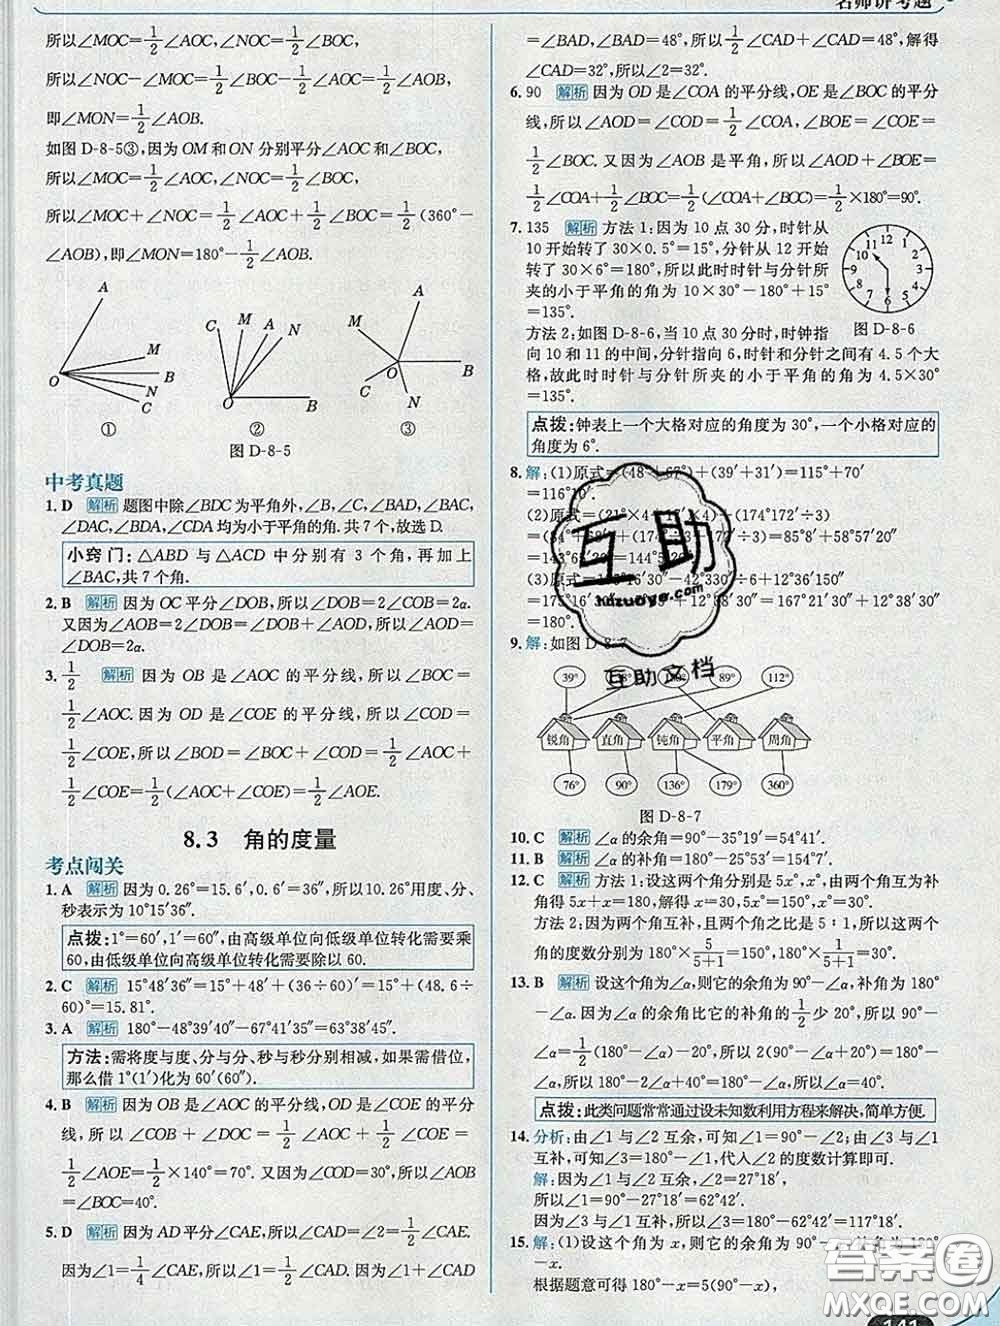 名师讲考题
所以∠MOC=1/2∠AOC,∠NOC=1/2∠BOC,
所以∠NOC-∠MOC=1/2∠BOC-1/2∠AOC=1/2∠AOB,
即∠MON=1/2∠AOB.
如图 D-8-5③,因为 OM 和 ON 分别平分∠AOC和∠BOC,
所以∠MOC=1/2∠AOC,∠NOC=1/2∠BOC,
所以∠MOC+∠NOC=1/2∠AOC+1/2∠BOC=1/2(360°-
∠AOB),即∠MON=180°-1/2∠AOB.
A M B N C O
①
C M A N O B
②
M A O B C N
③
图 D-8-5
中考真题
1. D 解析 题图中除∠BDC为平角外,∠B,∠C,∠BAD,∠BAC,
∠DAC,∠BDA,∠CDA均为小于平角的角.共7个,故选D.
小窍门:△ABD 与△ACD 中分别有 3 个角,再加上
∠BAC,共7个角.
2. B 解析 因为OC平分∠DOB,所以∠DOB=2∠COB=2α.
又因为∠AOB=2∠DOB-∠DOB,所以∠AOD=
∠DOB=2α.
3. 1/2 解析 因为 OB 是∠AOC的平分线,所以∠BOC=
1/2∠AOC.因为 OD 是∠COE的平分线,所以∠COD=
1/2∠COE,所以∠BOD=∠BOC+∠COD=1/2∠AOC+
1/2∠COE=1/2(∠AOC+∠COE)=1/2∠AOE.
8.3 角的度量
考点闯关
1. A 解析 因为 0.26°=15.6′,0.6′=36″,所以10.26°用度、分、
秒表示为10°15′36″.
点拨:1°=60′,1′=60″,由高级单位向低级单位转化需要乘
60,由低级单位向高级单位转化需要除以60.
2. C 解析 15°48′36″=15°+48′+(36÷60)′=15°+(48.6÷
60)°=15.81°.
3. A 解析 180°-48°39′40″-67°41′35″=63°38′45″.
方法:需将度与度、分与分、秒与秒分别相减,如果需借位,
那么借1°(1′)化为60′(60″).
4. B 解析 因为 OB 是∠AOC的平分线,OD是∠COE的平分
线,所以∠COB+∠DOC=1/2∠AOC+1/2∠COE=
1/2∠AOE=1/2×140°=70°.又因为∠COD=30°,所以
∠BOC=40°.
5. D 解析 因为AD平分∠CAE,所以∠CAD=∠2=1/2∠CAE.
因为∠1=1/4∠CAE,所以∠1=1/2∠CAD.因为∠1+∠CAD
=∠BAD,∠BAD=48°,所以1/2∠CAD+∠CAD=48°,解得
∠CAD=32°,所以∠2=32°.
6. 90 解析 因为OD是∠COA的平分线,OE是∠BOC的平分
线,所以∠AOD=∠COD=1/2∠COA,∠BOE=∠COE=
1/2∠BOC.又因为∠AOB是平角,所以∠AOD+∠BOE=
1/2∠COA+1/2∠BOC=1/2(∠BOC+∠COA)=1/2×180°=90°.
7. 135 解析 方法1:因为10点30分,时针从
10开始转了30×0.5°=15°,分针从12开始
转了30×6°=180°,所以此时时针与分针所
夹的小于平角的角为10×30°-180°+15°
=135°.
方法2:如图D-8-6,当10点30分时,时钟指
向10和11的中间,分针指向6,时针和分针之间有4.5个大
格,故此时时针与分针所夹的小于平角的角为4.5×30°
=135°.
12 1 2 3 4 5 6 7 8 9 10 11
图 D-8-6
点拨:钟表上一个大格对应的角度为30°,一个小格对应的
角度为6°.
8. 解:(1)原式=(48°+67°)+(39′+31′)=115°+70′
=116°10′.
(2)原式=(21°×4+17′×4)+(174°172′÷3)
=(84°+68′)+(58°57′20″)=85°8′+58°57′20″
(3)原式=
=180°.
9. 解:如图 D-8-
39° 89° 112°
锐角 直角 钝角 平角 周角
76° 90° 136° 179° 360°
图 D-8-7
10. C 解析 ∠α的余角=90°-35°19′=54°41′.
11. B 解析 ∠α的补角=180°-25°53′=154°7′.
12. C 解析 方法1:设这两个角分别是5x°,x°,由两个角互为补
角得5x+x=180,解得x=30,5x°=150°,x°=30°.
方法2:因为两个角互补,且两个角之比是5:1,所以这两个
角的度数分别为180°×5/(5+1)=150°,180°×1/(5+1)=30°.
13. B 解析 设这个角为∠α,则它的余角为90°-∠α,补角为180°
-∠α.因为∠α的余角比它的补角的1/2少20°,所以90°-
∠α=1/2(180°-∠α)-20°,所以2(90°-∠α)=180°-∠α-
40°,所以180°-2∠α+40°=180°-∠α,所以∠α=40°.
点拨:此类问题常常通过设未知数利用方程来解决,简单方便.
14. 分析:由∠1与∠2互余,可知∠1=90°-∠2;由∠3与∠1
互补,可知∠3=180°-∠1,代入∠2的度数计算即可.
解:因为∠1与∠2互余,∠2=27°18′,
所以∠1=90°-27°18′=62°42′.
因为∠3与∠1互补,所以∠3=180°-62°42′=117°18′.
15. 解:(1)设这个角为x,则它的余角为90°-x,补角为180°
-x.
根据题意可得180°-x=5(90°-x),
141
互助
hdzuoye.com
互助文档
答案圈
MXQE.COM